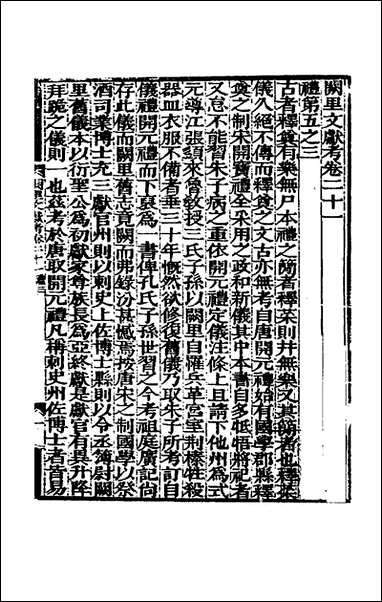 闕里文獻考卷二十一
禮第五之三
古者釋奠有樂無尸本禮之簡者釋菜則并無樂又其簡者也釋菜
儀久絕不傳而釋奠之文古亦無考自唐開元禮始有國學郡縣釋
奠之制宋開寶禮全采用之政和新儀其中本書自多牴牾將祀者
又怠不能習朱子病之重依開元禮定儀注條上且請下他州爲式
元導江張頾來魯教授三氏子孫以闕里自罹兵革宮室荆榛牲殺
器皿衣服不備者垂三十年慨然欲修復舊儀乃取朱子所考訂自
儀禮開元禮而下裒爲一書俾孔氏子孫世習之今考祖庭廣記尙
存此儀而闕里舊志竟闕而弗錄汾甚憾焉按唐宋之制國學以祭
酒司業博士充三獻官州則以刺史上佐博士縣則以令丞簿尉闕
里舊儀本以衍聖公爲初獻家尊族長爲亞終獻是獻官有異升降
拜跪之儀則一也茲考於唐取開元禮凡稱刺史州佐博士者皆易